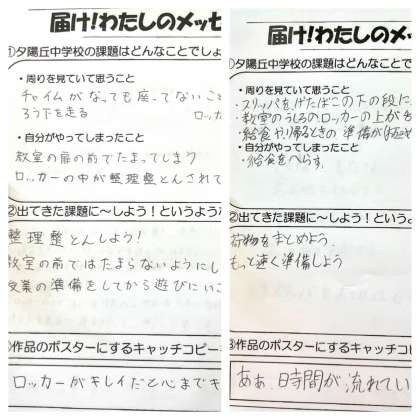 届け!わたしのメッセ
①夕陽丘中学校の課題はどんなことでしょ
・周りを見ていて思うこと
チャイムがなっても座ってないこと
ろう下を走る
ロッカ
・自分がやってしまったこと
教室の扉の前でたまってしまう
ロッカーの中が整理整とんされて
②出てきた課題に~しよう!というような
整理整とんしよう!
教室の前ではたまらないようにし
授業の準備をしてから遊びにいこ
③作品のポスターにするキャッチコピー
ロッカーがキレイだと心までキ
届け!わたしのメッ
①夕陽丘中学校の課題はどんなことで
・周りを見ていて思うこと
・スリッパをげたばこの下の段に
・教室のうしろのロッカーの上が
・給食や帰るときの準備が
・自分がやってしまったこと
・給食をへらす。
②出てきた課題に~しよう!という
荷物をまとめよう、
もっと速く準備しよう
③作品のポスターにするキャッチコ
あぁ、時間が流れてい